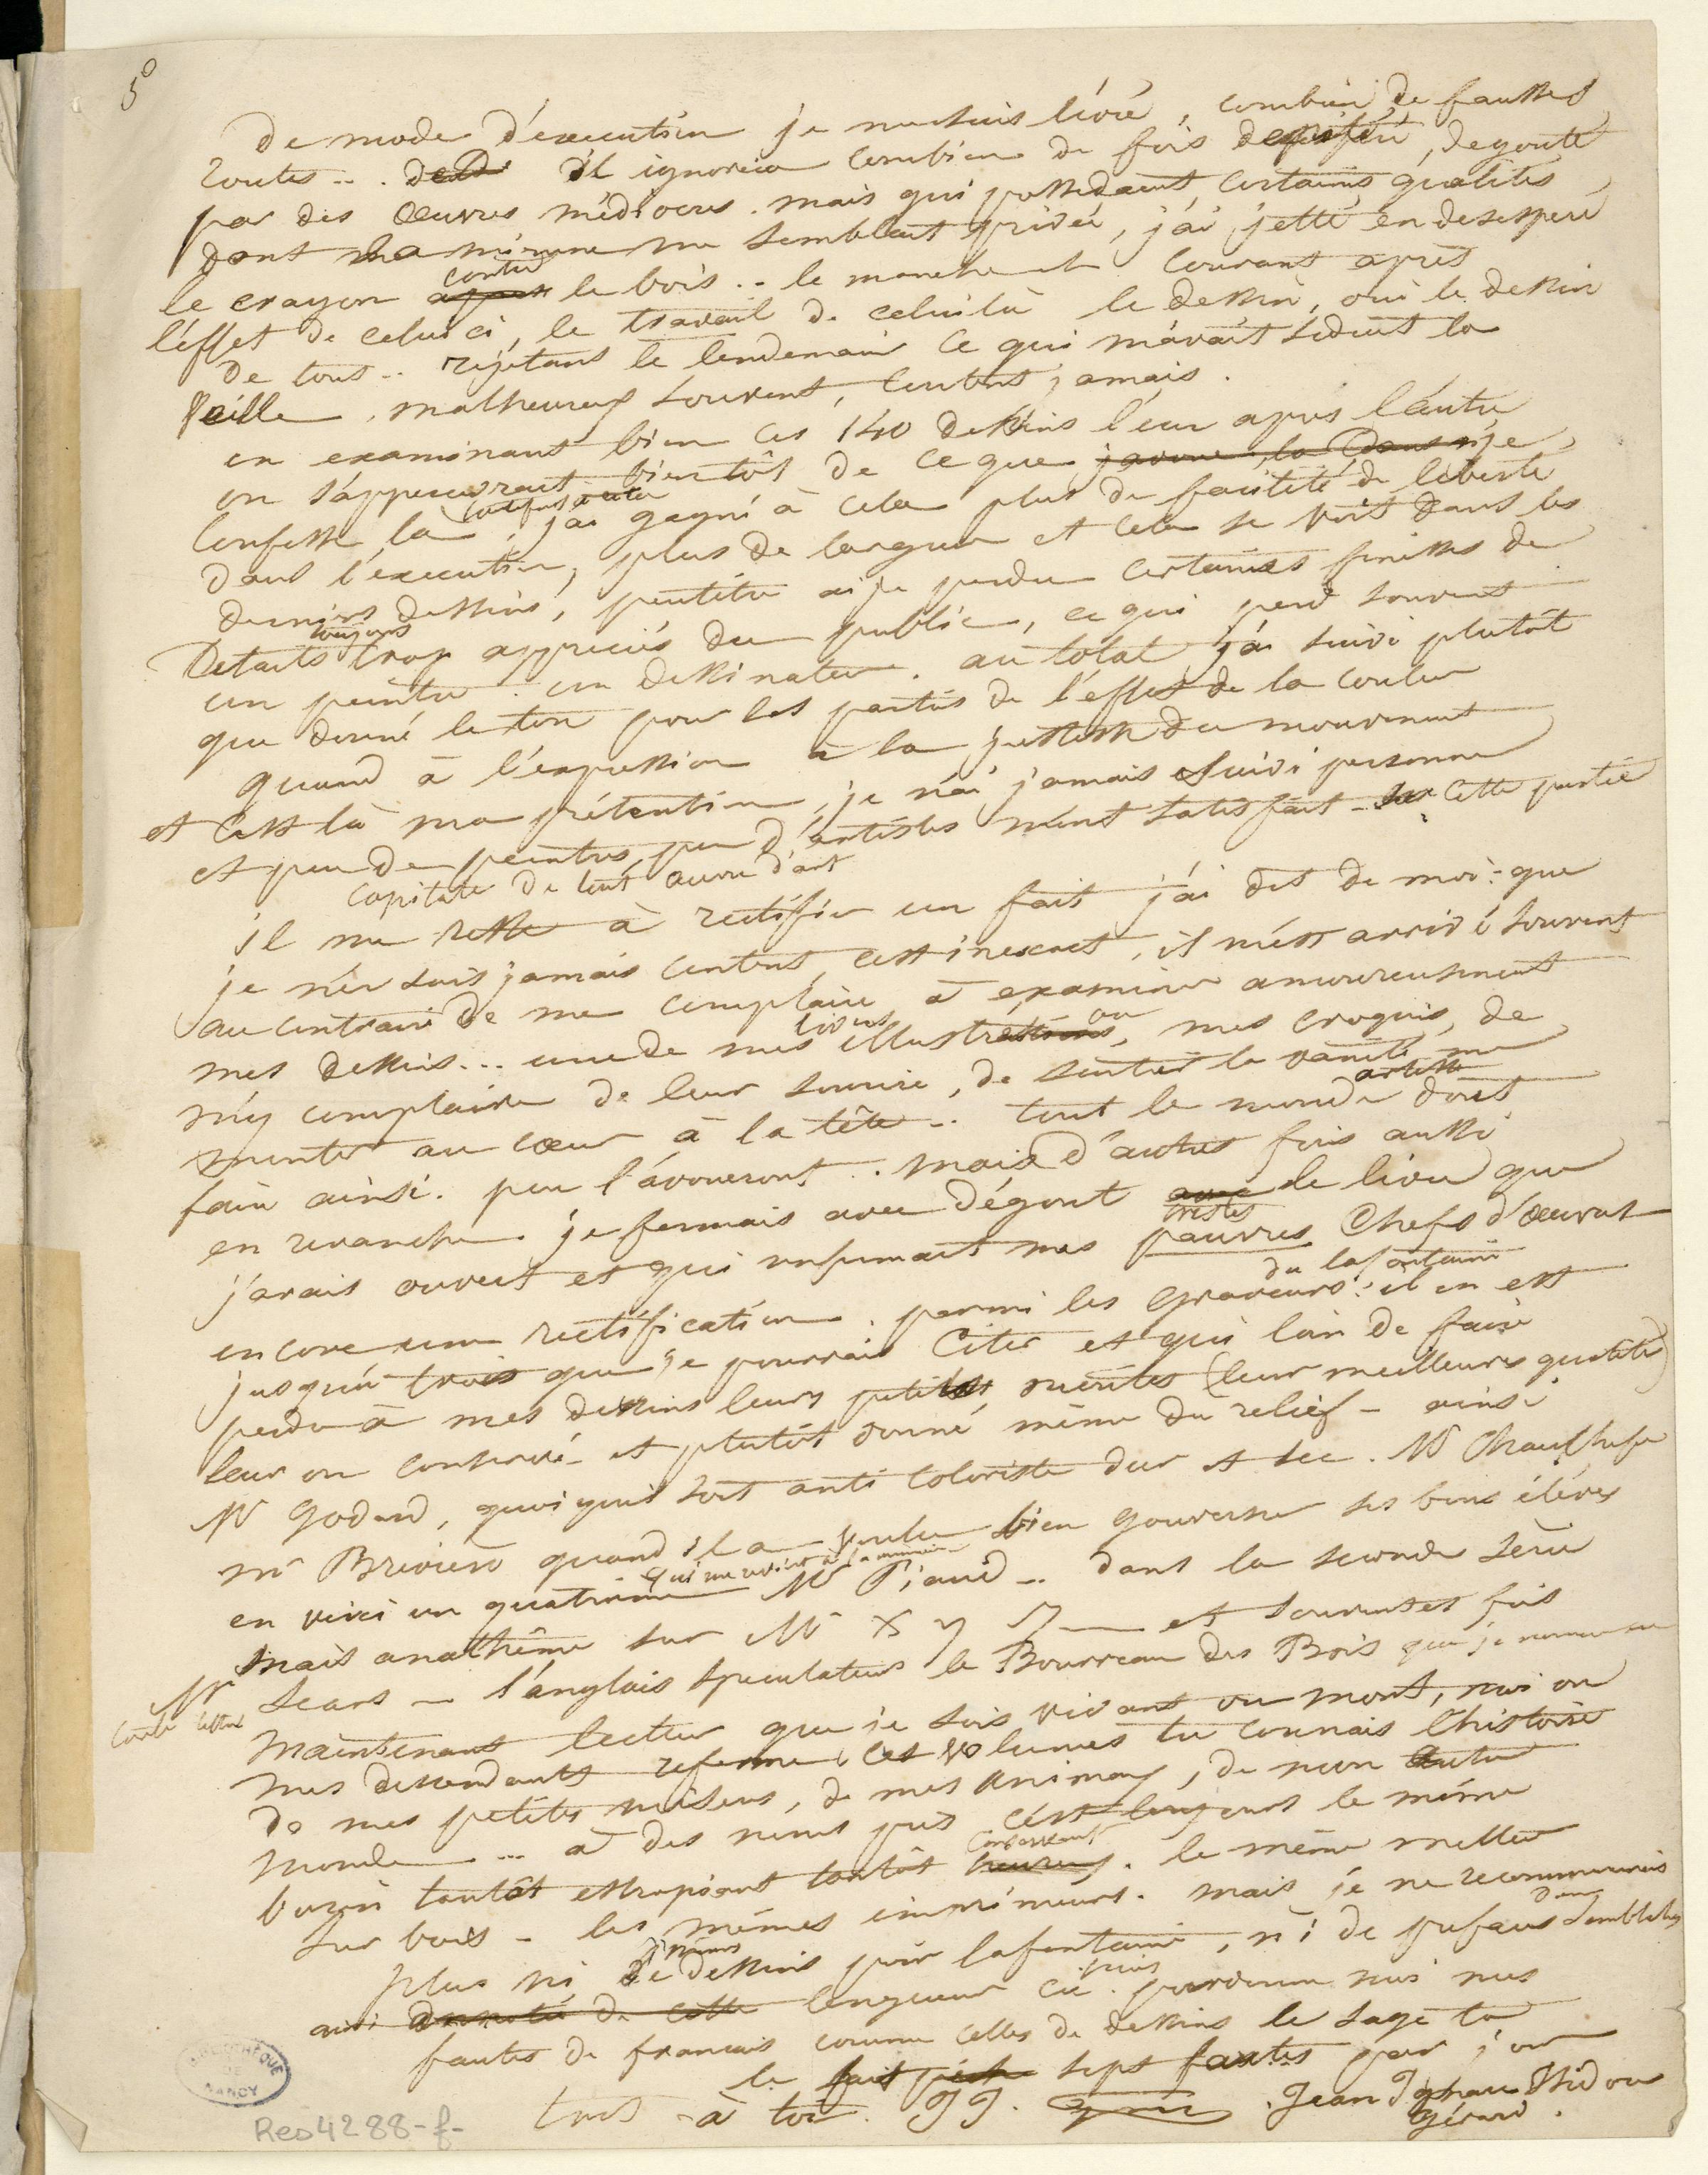 5°
de mode d'execution je me suis livré, combien de fausses
routes... il ignorera combien de fois dégouté
par des œuvres médiocres. mais qui possedaient certaines qualités
dont la mienne me semblait privée, j'ai jetté en desesperé
le crayon contre le bois.. le manche et courant après
l'effet de celui ci, le travail de celui là le dessin, oui le dessin
de tous.. rejetant le lendemain ce qui m'avait séduit la
veille, malheureux souvent, content jamais.
en examinant bien ces 140 dessins l'un apres l'autre
on s'appercevrait bientôt de ce que je
confesse là, j'ai gagné à cela plus de facilité de liberté
dans l'execution, plus de largeur et cela se voit dans les
derniers dessins, peutêtre ai je perdu certaines finesses de
Details toujours trop appreciés du public, ce qui perd souvent
un peintre. un dessinateur. au total j'ai suivi plutôt
que donné le ton pour les parties de l'effet de la couleur
quand à l'expression à la justesse du mouvement
et c'est là ma prétention, je n'ai jamais suivi personne
et peu de peintres, peu d'artistes m'ont satisfait - sur cette partie
capitale de tout œuvre d'art
il me reste à rectifier un fait j'ai dit de moi: que
je n'en suis jamais content, c'est inexact, il m'est arrivé souvent
au contraire de me complaire à examiner amoureusement
mes dessins... une de mes illustrations, mes croquis, de
m'y complaire de leur sourire, de sentir la vanité me
monter au cœur à la tête.. tout le monde artiste doit
faire ainsi. peu l'avoueront. mais d'autres fois aussi
en revanche je fermais avec dégout le livre que
j'avais ouvert et qui renfermait mes tristes pauvres chefs d'œuvres
encore une rectification. parmi les graveurs du lafontaine: il en est
jusqu'à trois que je pourrais citer et qui loin de faire
perdre à mes dessins leurs petits mérites (leur meilleures qualités)
leur on conservé et plutôt donné même du relief - ainsi
Mr Godard, quoiqu'il soit anti coloriste dur et sec. Mr
mr Brevière quand il a voulu bien gouverner ses bons élèves
en voici un quatrième qui me revient à la mémoire Mr Piaud.. dans la seconde série
mais anathême sur Mr X y Z et souventes fois
Mr Sears - l'anglais speculateur le Bourreau des Bois que je nomme en
toute lettre
maintenant lecteur que je sois vivant ou mort, moi ou
mes descendants referme ces volumes tu connais l'histoire
de mes petites misères, de mes animaux, de mon autre
monde... à des noms près c'est toujours le même
burin tantôt estropiant tantôt caressant. le même metteur
sur bois - les mêmes imprimeurs. mais je ne recommencerais
plus ni de dessins pour lafontaine, ni de prefaces d'une semblable
longueur
pardonne moi mes
fautes de francais comme celles de dessins le sage
le fait sept fautes par jour
tout à toi. JJ. Jean Ignace Isidore
Gérard.
BIBLIOTHÈQUE
DE
NANCY
Res 4288-f-